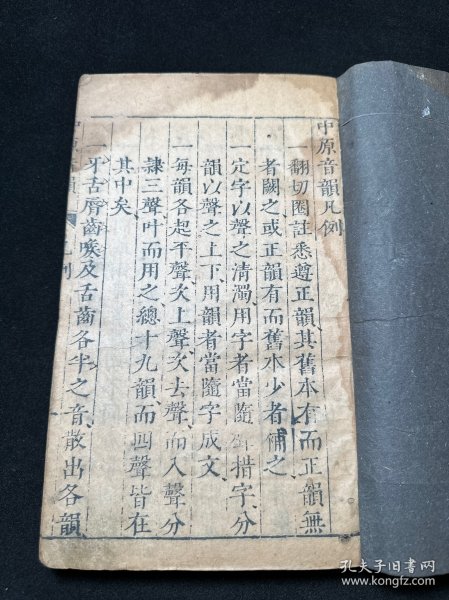 中原音韻凡例
一翻切圈註悉遵正韻其舊本有而正韻無
者闕之或正韻有而舊本少者補之
一定字以聲之清濁用字者當隨聲措字分
韻以聲之上下用韻者當隨字成文
一每韻各起平聲次上聲次去聲而入聲分
隸三聲叶而用之總十九韻而四聲皆在
其中矣
一牙舌脣齒喉及舌齒各半之音散出各韻
孔夫子旧书网
book.kongfz.com